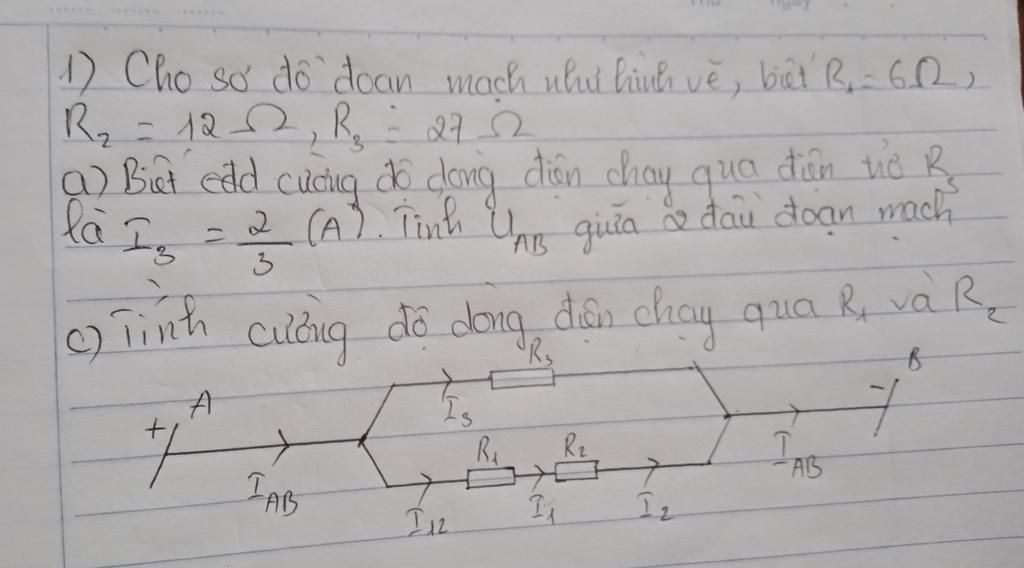 1) Cho sơ đồ đoạn mạch như hình vẽ, biết R₁ = 6Ω,
R₂ = 12 Ω, R₃ = 27 Ω
a) Biết cđd cường độ dòng điện chạy qua điện trở R₃
là I₃ = 2/3 (A). Tính U_AB giữa 2 đầu đoạn mạch
c) Tính cường độ dòng điện chạy qua R₁ và R₂
R₃
B
+ A
-
I₃
R₁ R₂
I_AB
I_AB
I₁₂ I₁ I₂